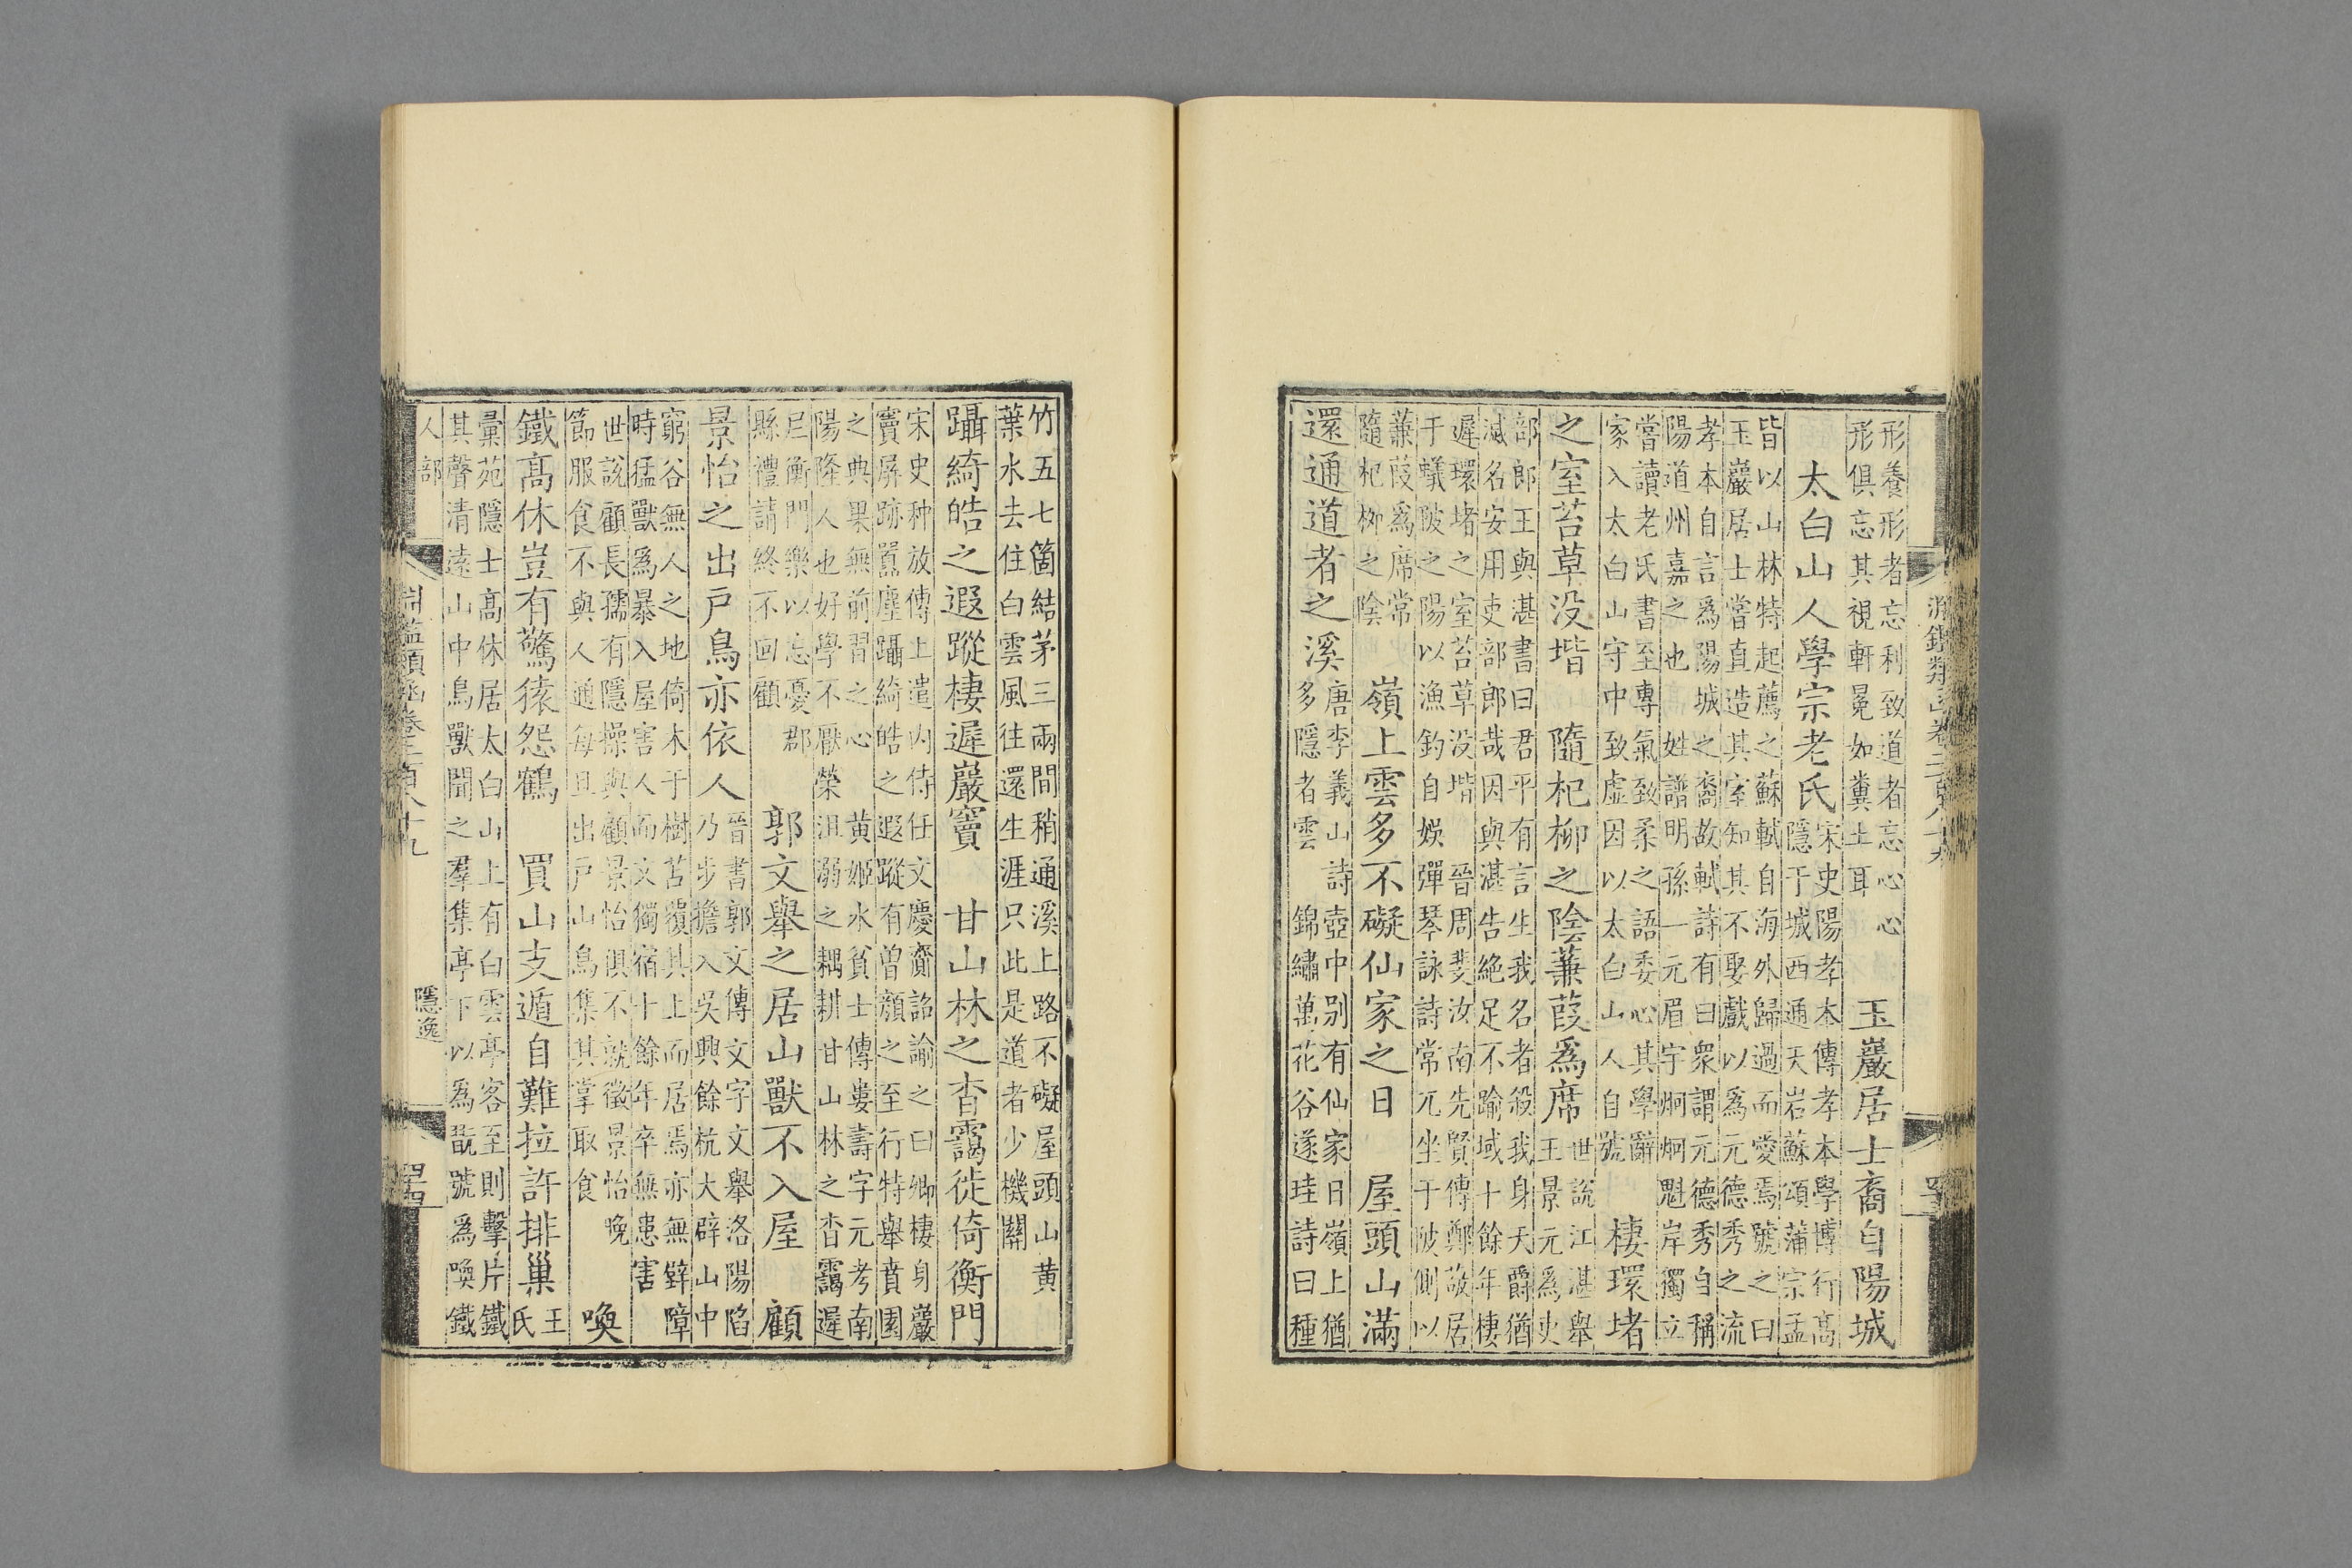 形養形者忘利致道者忘心心
形俱忘其視軒冕如糞土耳
玉巖居士裔自陽城
太白山人學宗老氏
宋史陽孝本傳孝本學博行高
隱于城西通天岩蘇頌蒲宗孟
皆以山林特起薦之蘇軾自海外歸過而愛焉號之曰
玉巖居士嘗直造其室知其不娶戲以爲元德秀之流
孝本自言爲陽城之裔故軾詩有曰衆謂元德秀自稱
陽道州嘉之也
姓譜明孫一元眉宇炯炯魁岸獨立
嘗讀老氏書至專氣致柔之語委心其學辭
家入太白山守中致虛因以太白山人自號
棲環堵
之室苔草没堦
隨杞柳之陰蒹葭爲席
世說江湛舉
王景元爲吏
部郎王與湛書曰君平有言生我名者殺我身天爵猶
滅名安用吏部郎哉因與湛告絶足不踰域十餘年棲
遲環堵之室苔草没堦
晉周斐汝南先賢傳鄭敬居
于蟻陂之陽以漁釣自娛彈琴詠詩常兀坐于陂側以
蒹葭爲席常
隨杞柳之陰
嶺上雲多不礙仙家之日
屋頭山滿
還通道者之溪
唐李義山詩壺中别有仙家日嶺上猶
多隱者雲
錦繡萬花谷遂珪詩曰種
竹五七箇結茅三兩間稍通溪上路不礙屋頭山黄
葉水去住白雲風往還生涯只此是道者少機關
躡綺皓之遐蹤棲遲巖竇
甘山林之杳靄徙倚衡門
宋史种放傳上遣内侍任文慶齎詔諭之曰卿棲身巖
竇屏跡囂塵躡綺皓之遐蹤有曾顏之至行特舉賁園
之典果無前習之心
黄姬水貧士傳婁壽字元考南
陽隆人也好學不厭榮沮溺之耦耕甘山林之杳靄遲
𡰥衡門樂以忘憂郡
縣禮請終不回顧
郭文舉之居山獸不入屋
顧
景怡之出戸鳥亦依人
晉書郭文傳文字文舉洛陽陷
乃步擔入吳興餘杭大辟山中
窮谷無人之地倚木于樹苫覆其上而居焉亦無壁障
時猛獸爲暴入屋害人而文獨宿十餘年卒無患害
世說顧長孺有隱操與顧景怡俱不就徵景怡晚
節服食不與人通每旦出戸山鳥集其掌取食
喚
鐵高休豈有驚猿怨鶴
買山支遁自難拉許排巢
王
氏
彙苑隱士高休居太白山上有白雲亭客至則擊片鐵
其聲清遠山中鳥獸聞之羣集亭下以爲翫號爲喚鐵
人部
淵鑑類函卷二百八十九
隱逸